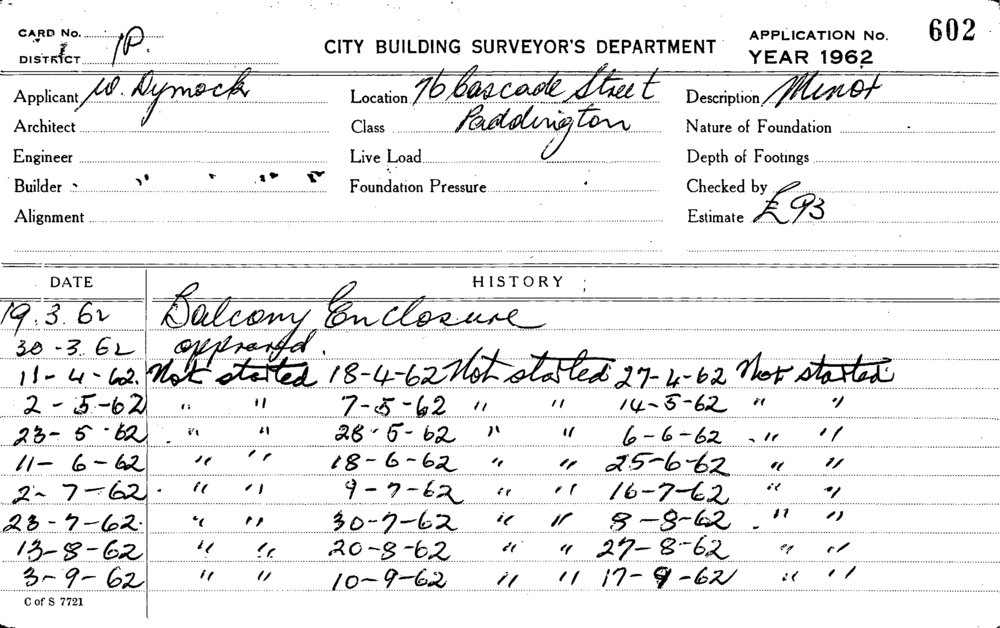 CARD No.
DISTRICT 1P.
CITY BUILDING SURVEYOR'S DEPARTMENT
APPLICATION No. 602
YEAR 1962
Applicant W. Dymock Location 76 Cascade Street Description Minor
Architect Class Paddington Nature of Foundation
Engineer Live Load Depth of Footings
Builder " " " " Foundation Pressure Checked by
Alignment Estimate £93
DATE HISTORY
19.3.62 Balcony Enclosure
30-3.62 approved.
11-4-62. Not started 18-4-62 Not started 27-4-62 Not started
2-5-62 " " 7-5-62 " " 14-5-62 " "
23-5-62 " " 28-5-62 " " 6-6-62 " "
11-6-62 " " 18-6-62 " " 25-6-62 " "
2-7-62 " " 9-7-62 " " 16-7-62 " "
23-7-62. " " 30-7-62 " " 8-8-62 " "
13-8-62 " " 20-8-62 " " 27-8-62 " "
3-9-62 " " 10-9-62 " " 17-9-62 " "
C of S 7721